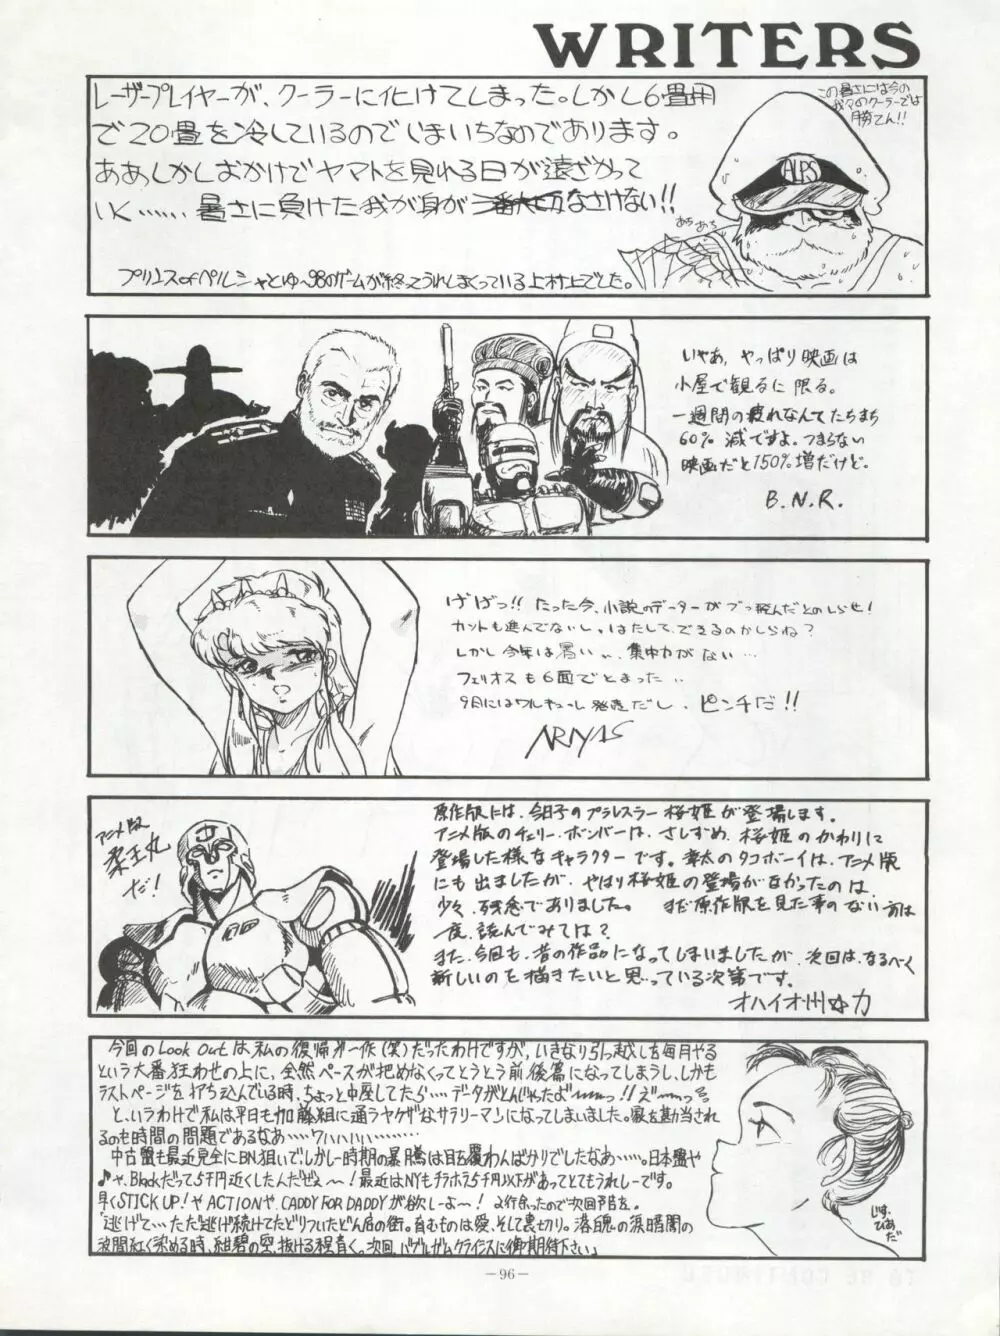 WRITERS
レーザープレイヤーが、クーラーに化けてしまった。しかし6畳用
で20畳を冷しているのでいまいちなのであります。
ああ、しかしおかげでヤマトを見れる日が遠ざかって
いく……暑さに負けた我が身がなさけない!!
プリンス of ペルシャとゆ〜98のゲームが終ってうれしまくっている上村上でした。
この暑さには今の
我々のクーラーでは
勝てん!!
ALPS
あち
あち
いやぁ、やっぱり映画は
小屋で観るに限る。
一週間の疲れなんてたちまち
60%減ですよ。つまらない
映画だと150%増だけど。
B.N.R.
げげっ!! たった今、小説のデーターがブッ飛んだとのしらせ!
カットも進んでないし、はたして、できるのかしらね?
しかし今年は暑い、、集中力がない…
フェリオスも6面でとまった…
9月にはワルキューレ発売だし、ピンチだ!!
ARIYAS
アニメ版
柔王丸
だ!
原作版には、今日子のプラレスラー桜姫が登場します。
アニメ版のチェリーボンバーは、さしずめ、桜姫のかわりに
登場した様なキャラクターです。幸太のタコボーイは、アニメ版
にも出ましたが、やはり桜姫の登場がなかったのは、
少々、残念でありました。 まだ原作版を見た事のない方は
一度、読んでみては?
また、今回も、昔の作品になってしまいましたが、次回は、なるべく
新しいのを描きたいと思っている次第です。
オハイオ州☆力
今回のLook Outは私の復帰第一作(笑)だったわけですが、いきなり引っ越しを毎月やる
という大番狂わせの上に、全然ペースが把めなくってとうとう前後篇になってしまうし、しかも
ラストページを打ち込んでいる時、ちょっと中座してたら…データがとんじゃったよ〜〜っ!!ズ〜〜っ
と、いうわけで私は平日も加藤組に通うヤクザなサラリーマンになってしまいました。家を勘当され
るのも時間の問題であるなあ……ワハハハハ………
中古盤も最近完全にBN狙いで、しかし一時期の暴騰は目を覆わんばかりでしたなあ……。日本盤や
♪や、Blackだって5千円近くしたんだぜェ〜! 最近はNYもチラホラ5千円以下があってとてもうれしーです。
早くSTICK UP!やACTIONや、CADDY FOR DADDYが欲しーよ〜! 2行余ったので次回予告を。
「逃げて…ただ逃げ続けてたどりついたどん底の街。育むものは愛、そして裏切り。落魄の涙暗闇の
波間紅く染める時、紺碧の空、抜ける程青く。次回、バブルガムクライシスに御期待下さい」
じす、
ひあ
だ
－96－